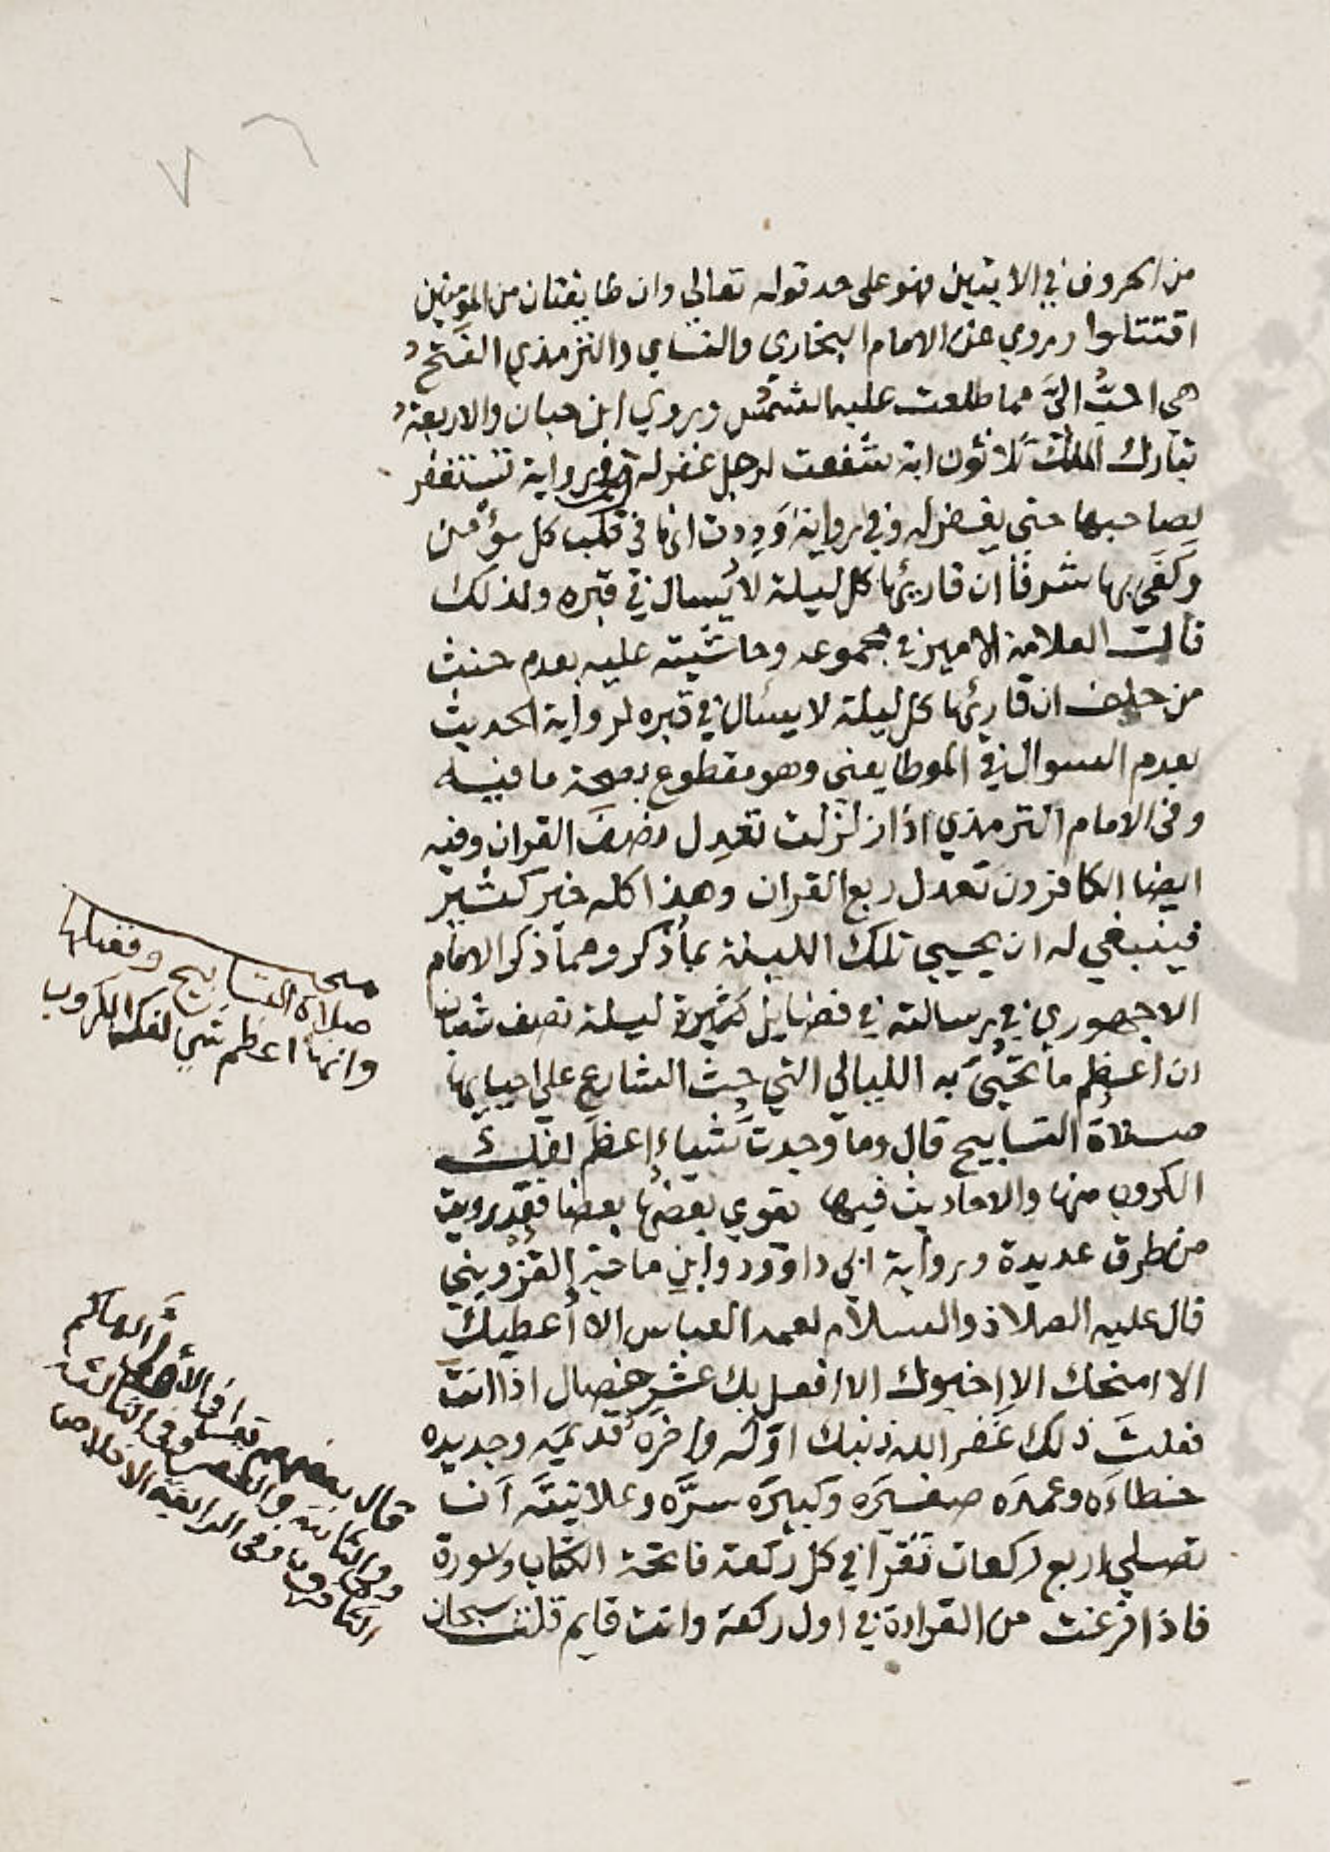 من الحروف في الايتين فهو على حد قوله تعالى وان طايفتان من المومنين
اقتتلوا وروي عن الامام البخاري والنساي والترمذي الفتح
هي احبُّ اليَّ مما طلعت عليه الشمس وروي ابن حبان والاربعة
تبارك الملك ثلاثون اية شفعت لرجل غفر له وفي رواية تستغفر
لصاحبها حتى يغفر له وفي رواية وَدِدت انها في قلب كل مؤمن
وكَفَى بها شرفًا ان قاريها كل ليلة لا يُسال في قبره ولذلك
قالت العلامة الامير في مجموعه وحاشيته عليه بعدم حنث
من حلف ان قاريها كل ليلة لا يسال في قبره لرواية الحديث
بعدم السوال في الموطا يعني وهو مقطوع بصحة ما فيه
وفي الامام الترمذي اذا زلزلت تعدل نصف القران وفيه
ايضا الكافرون تعدل ربع القران وهذا كله خير كثير
فينبغي له ان يحيي تلك الليلة بما ذكر ومما ذكر الامام
الاجهوري في رسالته في فضايل ليلة نصف شعبان
ان اعظم ما تحيى به الليالي التي حث الشارع على احيايها
صلاة التسابيح قال وما وجدت شياء اعظم لفك
الكروب منها والاحاديث فيها يقوي بعضها بعضا فقد رويت
من طرق عديدة ورواية ابي داوود وابن ماجة القزويني
قال عليه الصلاة والسلام لعمه العباس الا أعطيك
الا امنحك الا اخبوك الا افعل بك عشر خصال اذا انت
فعلت ذلك غفر الله ذنبك اوّله واخره قديمه وجديده
خطاءه وعمده صغيره وكبيره سرّه وعلانيته ان
تصلي اربع ركعات تقرا في كل ركعة فاتحة الكتاب وسورة
فاذا فرغت من القراءة في اول ركعة وانت قايم قلت سبحان
صلاة التسابيح وفضلها
وانها اعظم شي لفك الكروب
قال بعضهم يقرا في الأولى الهاكم
وفي الثانية والعصر وفي الثالثة
الكافرون وفي الرابعة الاخلاص